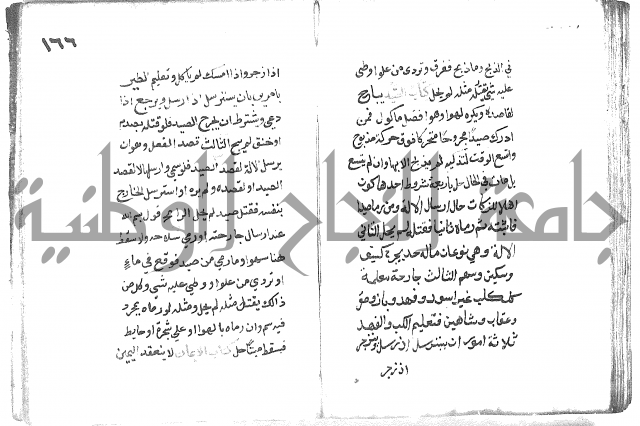 في الذبح وما ذبح فغرق وتردى من علو او وطئ
عليه شي يقتله مثله لم يحل كتاب الصيد يباح
لقاصده ويكره لهوا وهو افضل ماكول فمن
ادرك صيدا مجروحا متحركا فوق حركة مذبوح
واتسع الوقت لتذكيته لم يبح الا بها وان لم يتسع
بل مات في الحال حل باربعة شروط احدها كون
اهلا للذكاة حال ارسال الالة ومن رمى صيدا
فاثبته ثم رماه ثانيا فقتله لم يحل الثاني
الالة وهي نوعان ما له حد يجرح كسيف
وسكين وسهم الثالث جارحة معلمة
ككلب غير اسود وفهد وباز وصقر
وعقاب وشاهين فتعليم الكلب والفهد
ثلاثة امور ان يسترسل اذا ارسل وينزجر
اذا زجر
١٦٦
اذا زجر واذا امسك لم ياكل وتعليم الطير
بامرين بان يسترسل اذا ارسل ويرجع اذا
دعي ويشترط ان يجرح الصيد فلو قتله بصدم
او خنق لم يبح الثالث قصد الفعل وهو ان
يرسل الالة لقصد الصيد فلو سمى وارسلها لا لقصد
الصيد او لقصده ولم يره او استرسل الجارح
بنفسه فقتل صيدا لم يحل الرابع قول بسم الله
عند ارسال جارحته او رمي سلاحه ولا تسقط
هنا سهوا وما رمي من صيد فوقع في ماء
او تردى من علو او وطئ عليه شي وكل من
ذلك يقتل مثله لم يحل ومثله لو رماه بمحدد
فيه سم وان رماه بالهوا او على شجرة او حايط
فسقط ميتا حل كتاب الايمان لا ينعقد اليمين
جامعة النجاح الوطنية